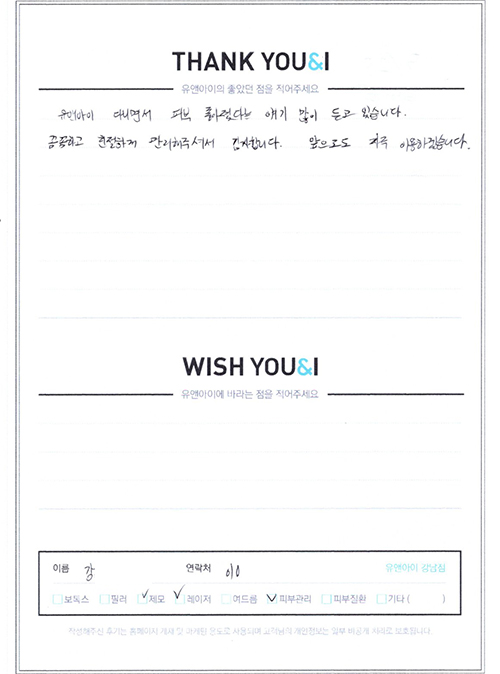 THANK YOU&I
유앤아이의 좋았던 점을 적어주세요
유앤아이 다니면서 피부 좋아졌다는 얘기 많이 듣고 있습니다.
꼼꼼하고 친절하게 관리해주셔서 감사합니다. 앞으로도 자주 이용하겠습니다.
WISH YOU&I
유앤아이에 바라는 점을 적어주세요
이름 강 연락처 010 유앤아이 강남점
보톡스 필러 제모 레이저 여드름 피부관리 피부질환 기타 ( )
작성해주신 후기는 홈페이지 게재 및 마케팅 용도로 사용되며 고객님의 개인정보는 일부 비공개 처리로 보호됩니다